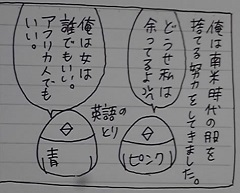 俺は南米時代の服を
捨てる努力をしてきました。
どうせ私は
余ってるよ
俺は女は
誰でもいい。
アフリカ人でも
いい。
英語の
とり
ピンク
青